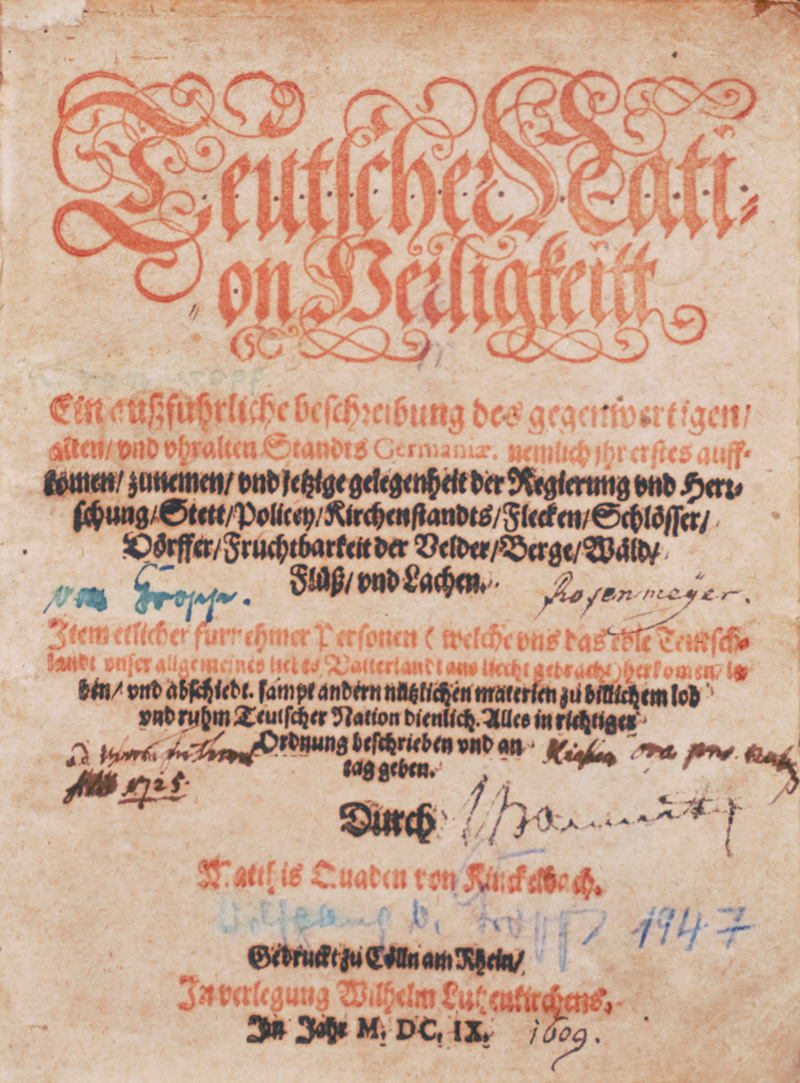 Teutscher Nati-
on Herligkeitt
Ein außfuhrliche beschreibung des gegenwertigen/
alten/ vnd vhralten Standts Germaniæ. nemlich jhr erstes auff-
komen/ zunemen/ vnd jetzige gelegenheit der Regierung vnd Herr-
schung/ Stett/ Policey/ Kirchenstandts/ Flecken/ Schlösser/
Dörffer/ Fruchtbarkeit der Velder/ Berge/ Wäld/
Flüß/ vnd Lachen.
von Tropp.
Rosenmeyer.
Item etlicher furnehmer Personen ( welche vns das edle Teutsch-
landt vnser allgemeines liebes Vatterlandt ans liecht gebracht) herkomen/ le-
ben/ vnd abschiedt. sampt andern nützlichen materien zu billichem lob
vnd ruhm Teutscher Nation dienlich. Alles in richtiger
Ordnung beschrieben vnd an
tag geben.
1725.
Durch
Matthis Quaden von Kinckelbach.
Wolfgang v. Tropp 1947
Gedruckt zu Cölln am Rhein/
In verlegung Wilhelm Lutzenkirchens,
Im Jahr M. DC. IX. 1609.